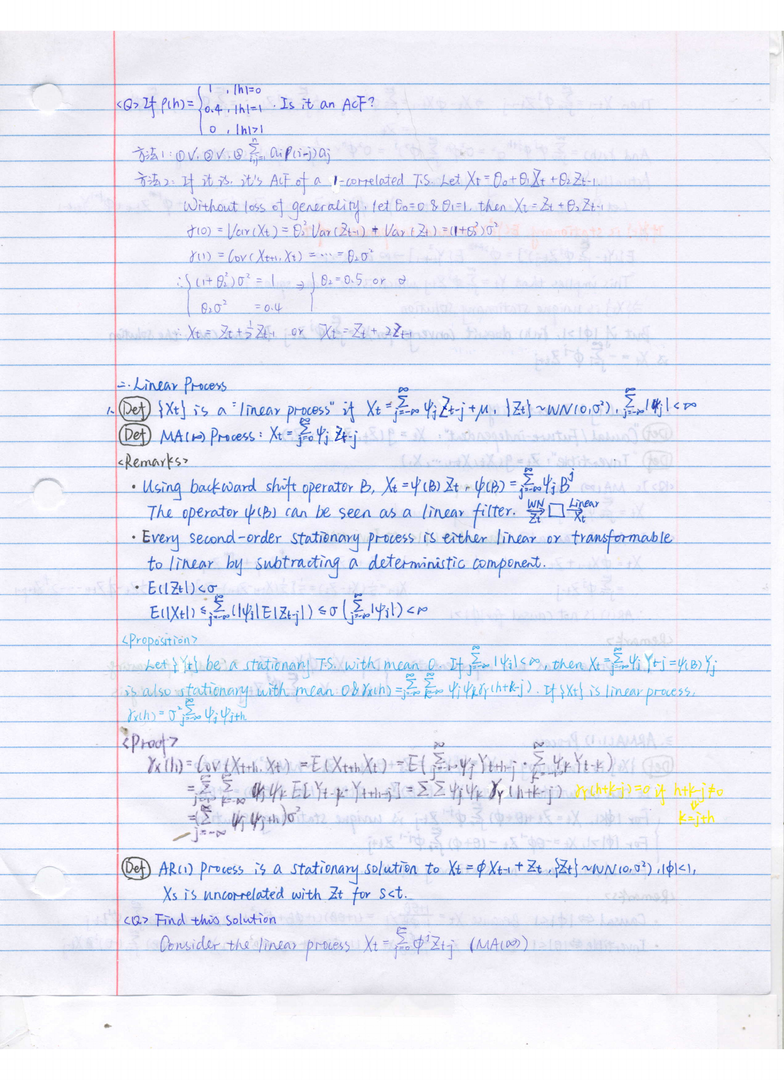 <Q> If ρ(h) = { 1 , |h|=0
0.4 , |h|=1 . Is it an ACF?
0 , |h|>1
方法1: ① V. ② V. ③ Σ_{i,j=1}^{n} aiρ(i-j)aj
方法2: If it is, it's ACF of a 1-correlated T.S. Let Xt = θ0+θ1Zt+θ2Zt-1.
Without loss of generality, let θ0=0 & θ1=1, then Xt = Zt+θ2Zt-1
γ(0) = Var(Xt) = θ2² Var(Zt-1) + Var(Zt) = (1+θ2²)σ²
γ(1) = Cov(Xt+1, Xt) = ⋯ = θ2σ²
∴ { (1+θ2²)σ² = 1 ⇒ { θ2=0.5 or 2
θ2σ² = 0.4
∴ Xt = Zt+½Zt-1 or Xt = Zt+2Zt-1
二. Linear Process
1. (Def) {Xt} is a "linear process" if Xt = Σ_{j=-∞}^{∞} ψj Zt-j + μ, {Zt} ~ WN(0,σ²), Σ_{j=-∞}^{∞} |ψj| < ∞
(Def) MA(∞) Process: Xt = Σ_{j=0}^{∞} ψj Zt-j
<Remarks>
· Using backward shift operator B, Xt = ψ(B) Zt, ψ(B) = Σ_{j=-∞}^{∞} ψj B^j
The operator ψ(B) can be seen as a linear filter. WN Zt → □ → Linear Xt
· Every second-order stationary process is either linear or transformable
to linear by subtracting a deterministic component.
· E(|Zt|) < σ
E(|Xt|) ≤ Σ_{j=-∞}^{∞} (|ψj| E|Zt-j|) ≤ σ (Σ_{j=-∞}^{∞} |ψj|) < ∞
<Proposition>
Let {Yt} be a stationary T.S. with mean 0. If Σ_{j=-∞}^{∞} |ψj| < ∞, then Xt = Σ_{j=-∞}^{∞} ψj Yt-j = ψ(B) Yj
is also stationary with mean 0 & γX(h) = Σ_{j=-∞}^{∞} Σ_{k=-∞}^{∞} ψj ψk γY(h+k-j). If {Xt} is linear process,
γX(h) = σ² Σ_{j=-∞}^{∞} ψj ψj+h
<Proof>
γX(h) = Cov(Xt+h, Xt) = E(Xt+h Xt) = E(Σ_{j=-∞}^{∞} ψj Yt+h-j · Σ_{k=-∞}^{∞} ψk Yt-k)
= Σ_{j=-∞}^{∞} Σ_{k=-∞}^{∞} ψj ψk E[Yt-k · Yt+h-j] = ΣΣ ψj ψk γY(h+k-j) γY(h+k-j)=0 if h+k-j≠0
= (Σ_{j=-∞}^{∞} ψj ψj+h) σ² k=j+h
(Def) AR(1) Process is a stationary solution to Xt = ϕXt-1 + Zt, {Zt} ~ WN(0,σ²), |ϕ|<1,
Xs is uncorrelated with Zt for s<t.
<Q> Find this solution
Consider the linear process Xt = Σ_{j=0}^{∞} ϕ^j Zt-j (MA(∞))